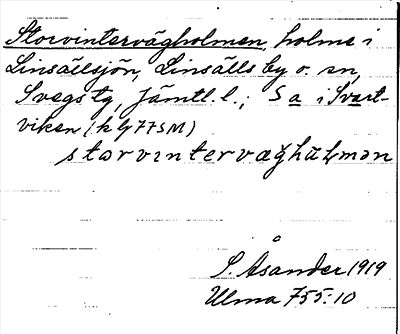 Storvintervägholmen, holme i
Linsällsjön, Linsälls by o. sn,
Svegs tg, Jämtl. l.; S a i Svart-
viken (k bl 77 SM)
storvintervæghɷlmən
S. Åsander 1919
Ulma 755:10